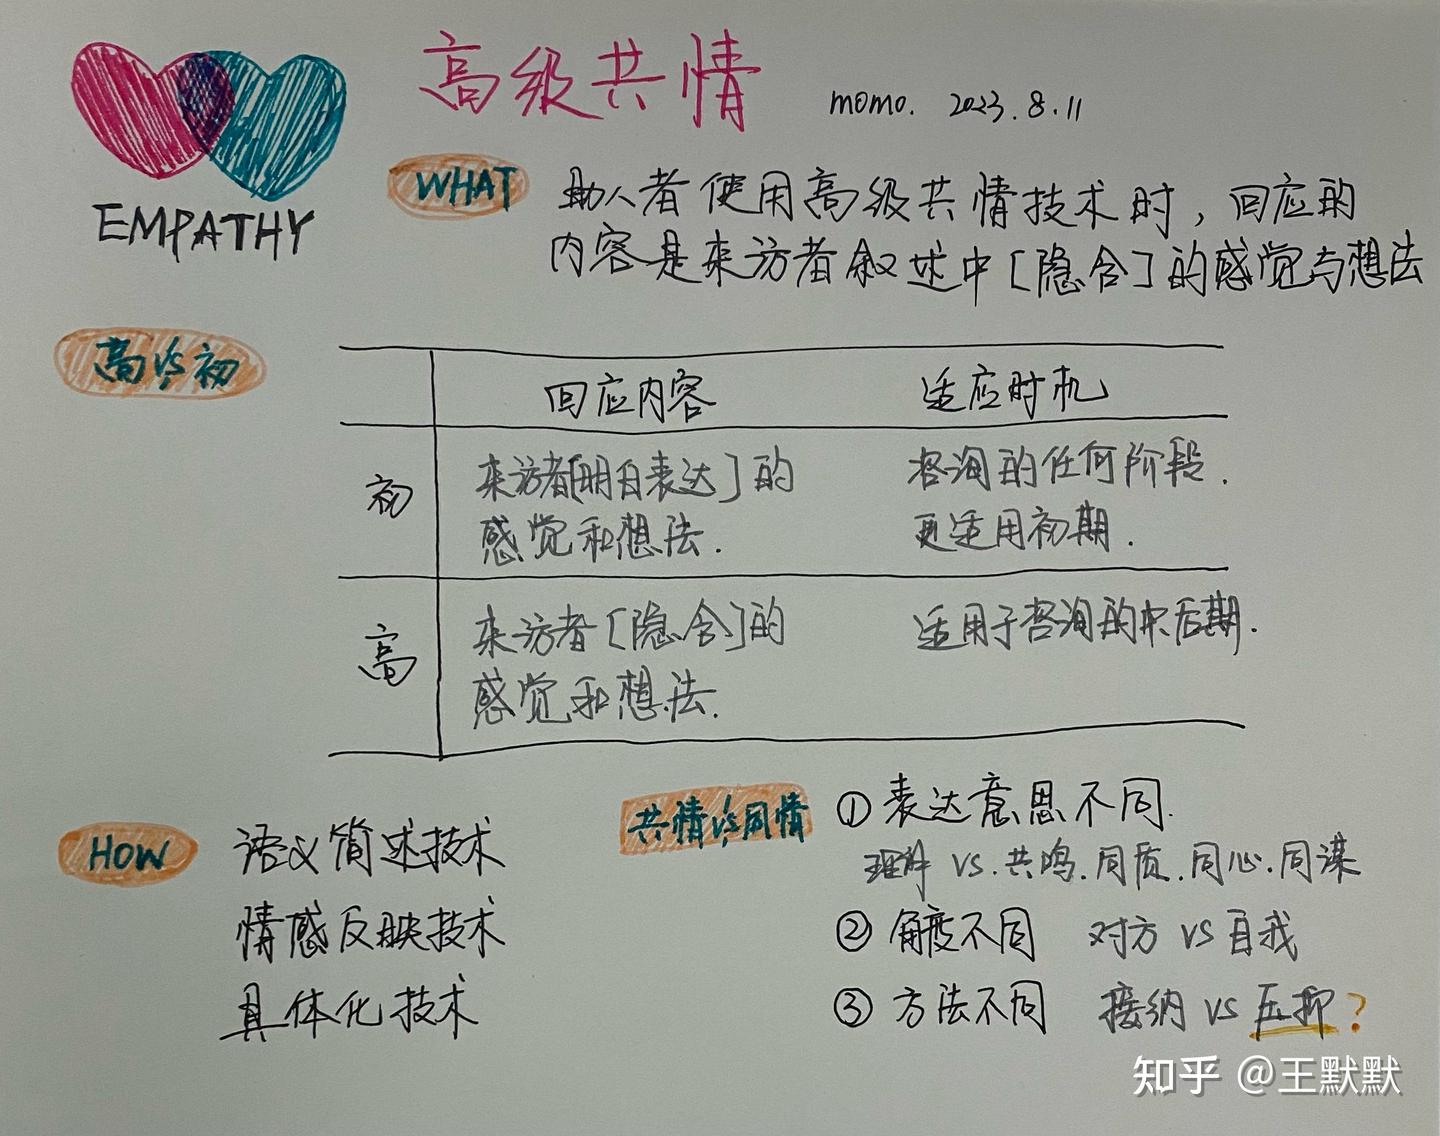 高级共情
momo. 2023.8.11
EMPATHY
WHAT
助人者使用高级共情技术时，回应的
内容是来访者叙述中[隐含]的感觉与想法
高vs初
回应内容 适应时机
初
来访者[明白表达]的
感觉和想法.
咨询的任何阶段.
更适用初期.
高
来访者[隐含]的
感觉和想法.
适用于咨询的中后期.
HOW
语义简述技术
情感反映技术
具体化技术
共情vs同情
①表达意思不同.
理解 vs.共鸣.同质.同心.同谋
②角度不同 对方 vs 自我
③方法不同 接纳 vs 压抑?
知乎 @王默默